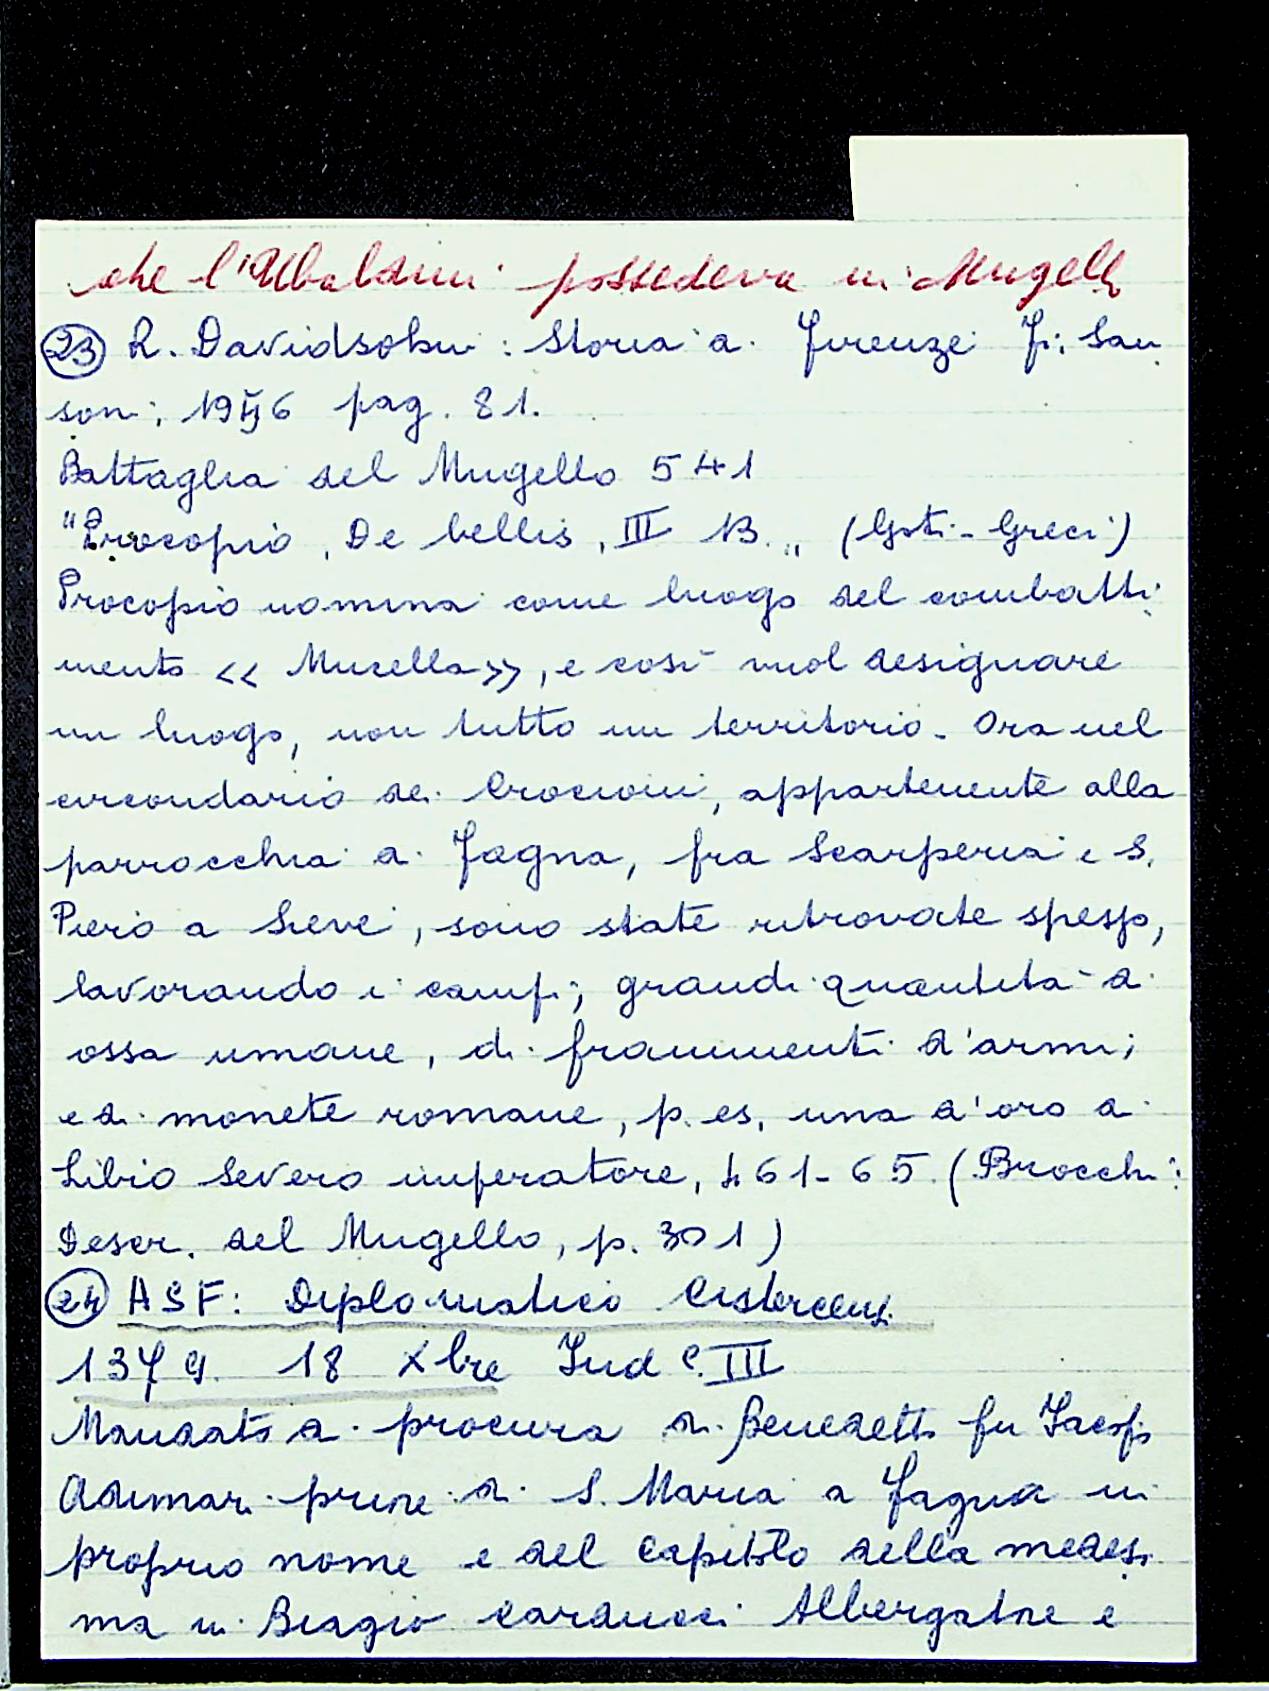 che l'Ubaldini possedeva in Mugello
23 R. Davidsohn: Storia di Firenze Fi: San
soni, 1956 pag. 81.
Battaglia del Mugello 541
"Procopio, De bellis, III 13.„ (Goti-Greci)
Procopio nomina come luogo del combatti
mento << Mucella>>, e così vuol designare
un luogo, non tutto un territorio. Ora nel
circondario dei Crocioni, appartenente alla
parrocchia di Fagna, fra Scarperia e S.
Piero a Sieve, sono state ritrovate spesso,
lavorando i campi, grandi quantità di
ossa umane, di frammenti d'armi,
e di monete romane, p. es. una d'oro di
Libio Severo imperatore, 461-65. (Brocchi:
Descr. del Mugello, p. 301)
24 ASF: Diplomatico Cistercens.
1379. 18 Xbre Ind e. III
Mandato di procura di Benedetto fu Jacopo
Adimari priore di S. Maria a Fagna in
proprio nome e del capitolo della medesi
ma in Biagio Carducci Albergatore e